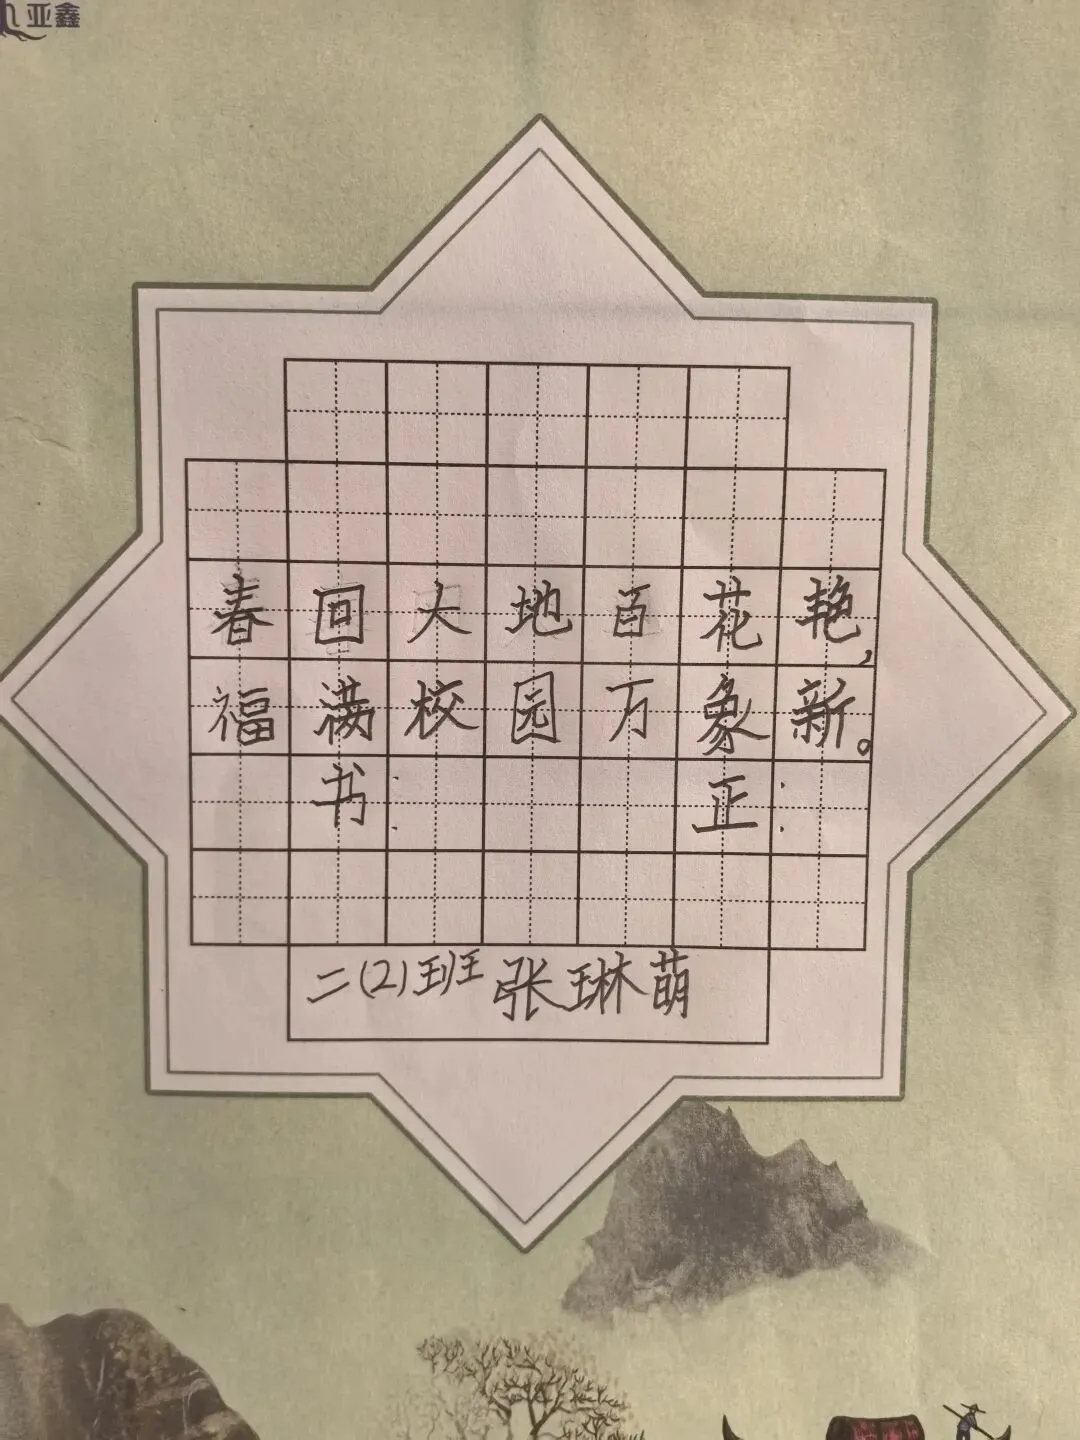 亚鑫
春回大地百花艳，
福满校园万象新。
书： 正：
二(2)班 张琳萌